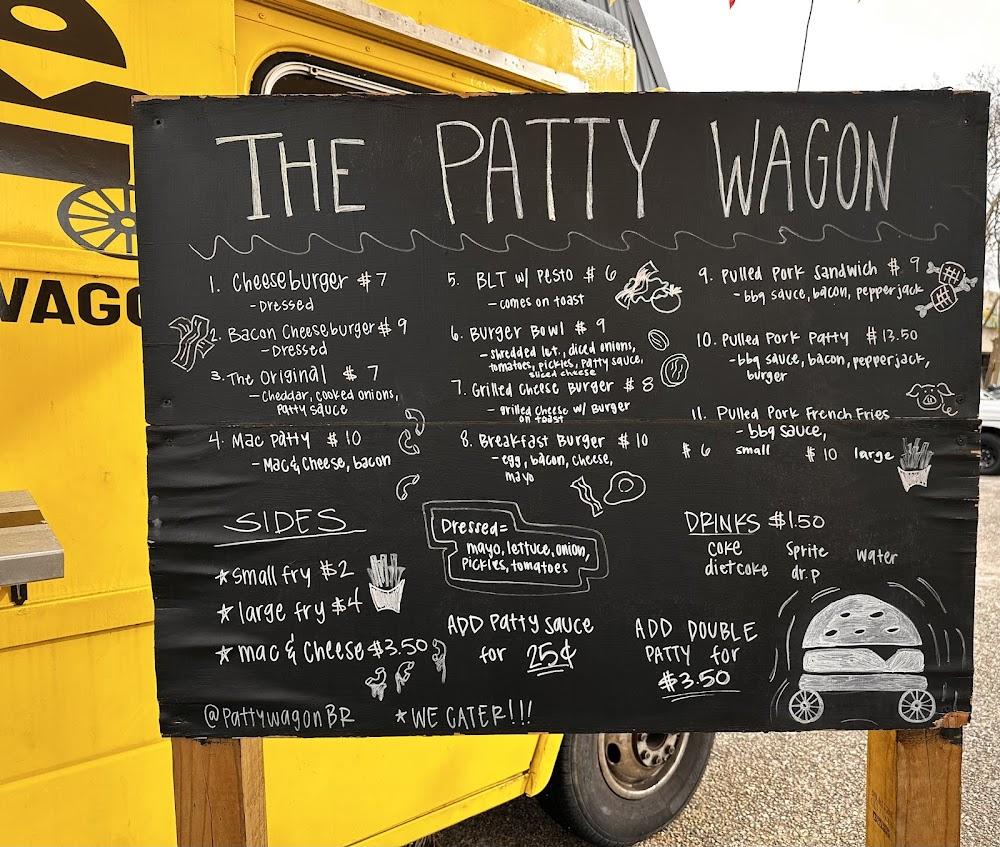 THE PATTY WAGON
WAGO
1. Cheeseburger $7
-Dressed
2. Bacon Cheeseburger $9
-Dressed
3. The Original $7
-Cheddar, cooked onions,
Patty sauce
4. Mac Patty $10
-Mac & Cheese, bacon
5. BLT w/ Pesto $6
-comes on toast
6. Burger Bowl $9
-shredded let., diced onions,
tomatoes, pickles, patty sauce,
sliced cheese
7. Grilled Cheese Burger $8
-grilled cheese w/ Burger
on toast
8. Breakfast Burger $10
-egg, bacon, cheese,
mayo
9. Pulled Pork Sandwich $9
-bbq sauce, bacon, pepperjack
10. Pulled Pork Patty $13.50
-bbq sauce, bacon, pepperjack,
burger
11. Pulled Pork French Fries
-bbq sauce,
$6 small $10 large
SIDES
*small fry $2
*large fry $4
*mac & cheese $3.50
Dressed=
mayo, lettuce, onion,
Pickles, tomatoes
ADD Patty sauce
for 25¢
DRINKS $1.50
coke Sprite water
diet coke dr. p
ADD DOUBLE
PATTY for
$3.50
@pattywagonBR *WE CATER!!!